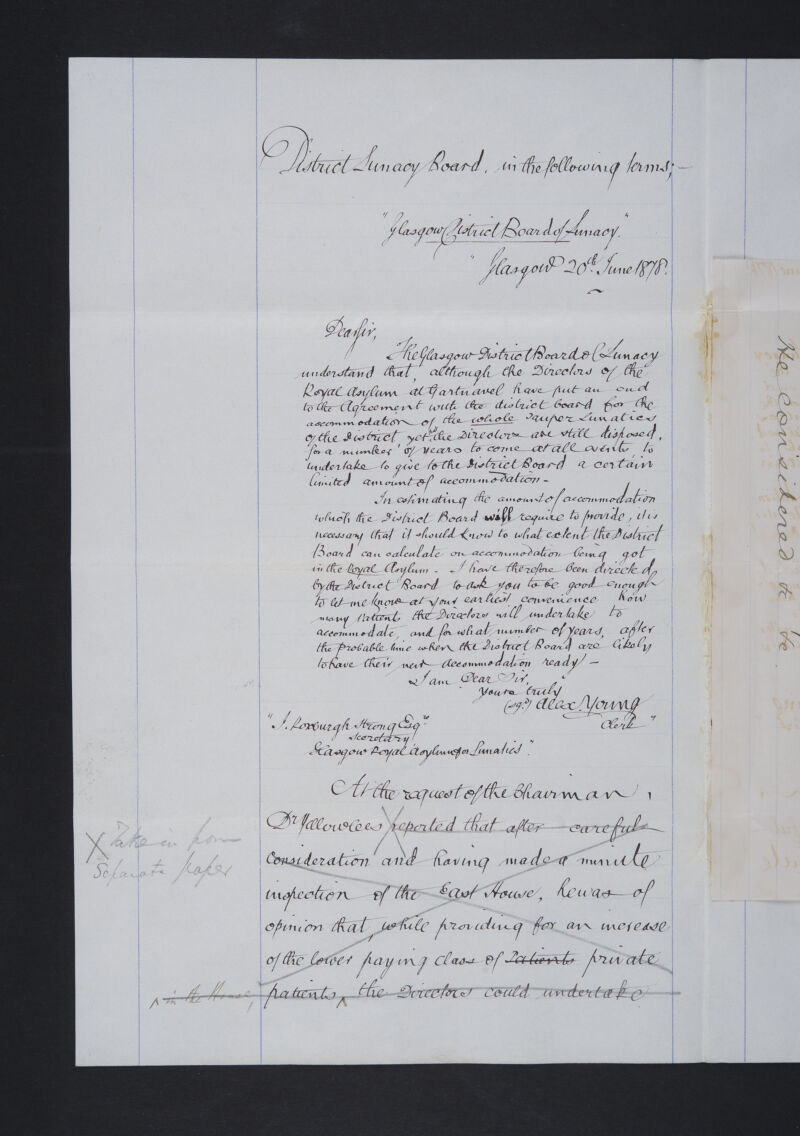 District Lunacy Board, in the following terms;—
"Glasgow District Board of Lunacy."
"Glasgow 20th June 1878.
Dear Sir,
The Glasgow District Board of Lunacy
understand that, although the Directors of the
Royal Asylum at Gartnavel have put an end
to the Agreement with the district board for the
accommodation of the whole Pauper Lunatics
of the District, yet the Directors are still disposed,
for a number of years to come at all events, to
undertake to give to the District Board a certain
limited amount of accommodation.—
In estimating the amount of accommodation
which the District Board will require to provide, it is
necessary that it should know to what extent the District
Board can calculate on accommodation being got
in the Royal Asylum.— I have therefore been directed
by the District Board to ask you to be good enough
to let me know at your earliest convenience how
many Patients the Directors will undertake to
accommodate, and for what number of years, after
the probable time when the District Board are likely
to have their new accommodation ready.—
I am Dear Sir,
yours truly
(sgd) Alex Young
Clerk"
"J. Roxburgh Strong Esqr
Secretary
Glasgow Royal Asylum for Lunatics".
At the request of the Chairman,
Dr Yellowlees reported that after careful
X Take in from
Separate paper
consideration and having made a minute
inspection of the East House, he was of
opinion that, while providing for an increase
of the lower paying class of Patients private
^ in the House,
patients, ^ the Directors could undertake
be considered to be